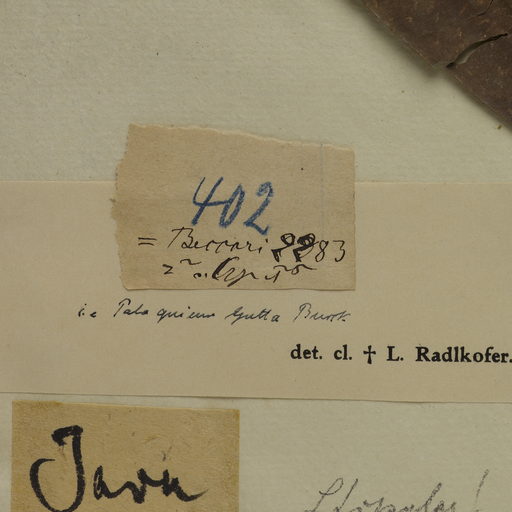 402
= Beccari 2283
i. e Palaquium Gutta Burck
det. cl. † L. Radlkofer.
Java